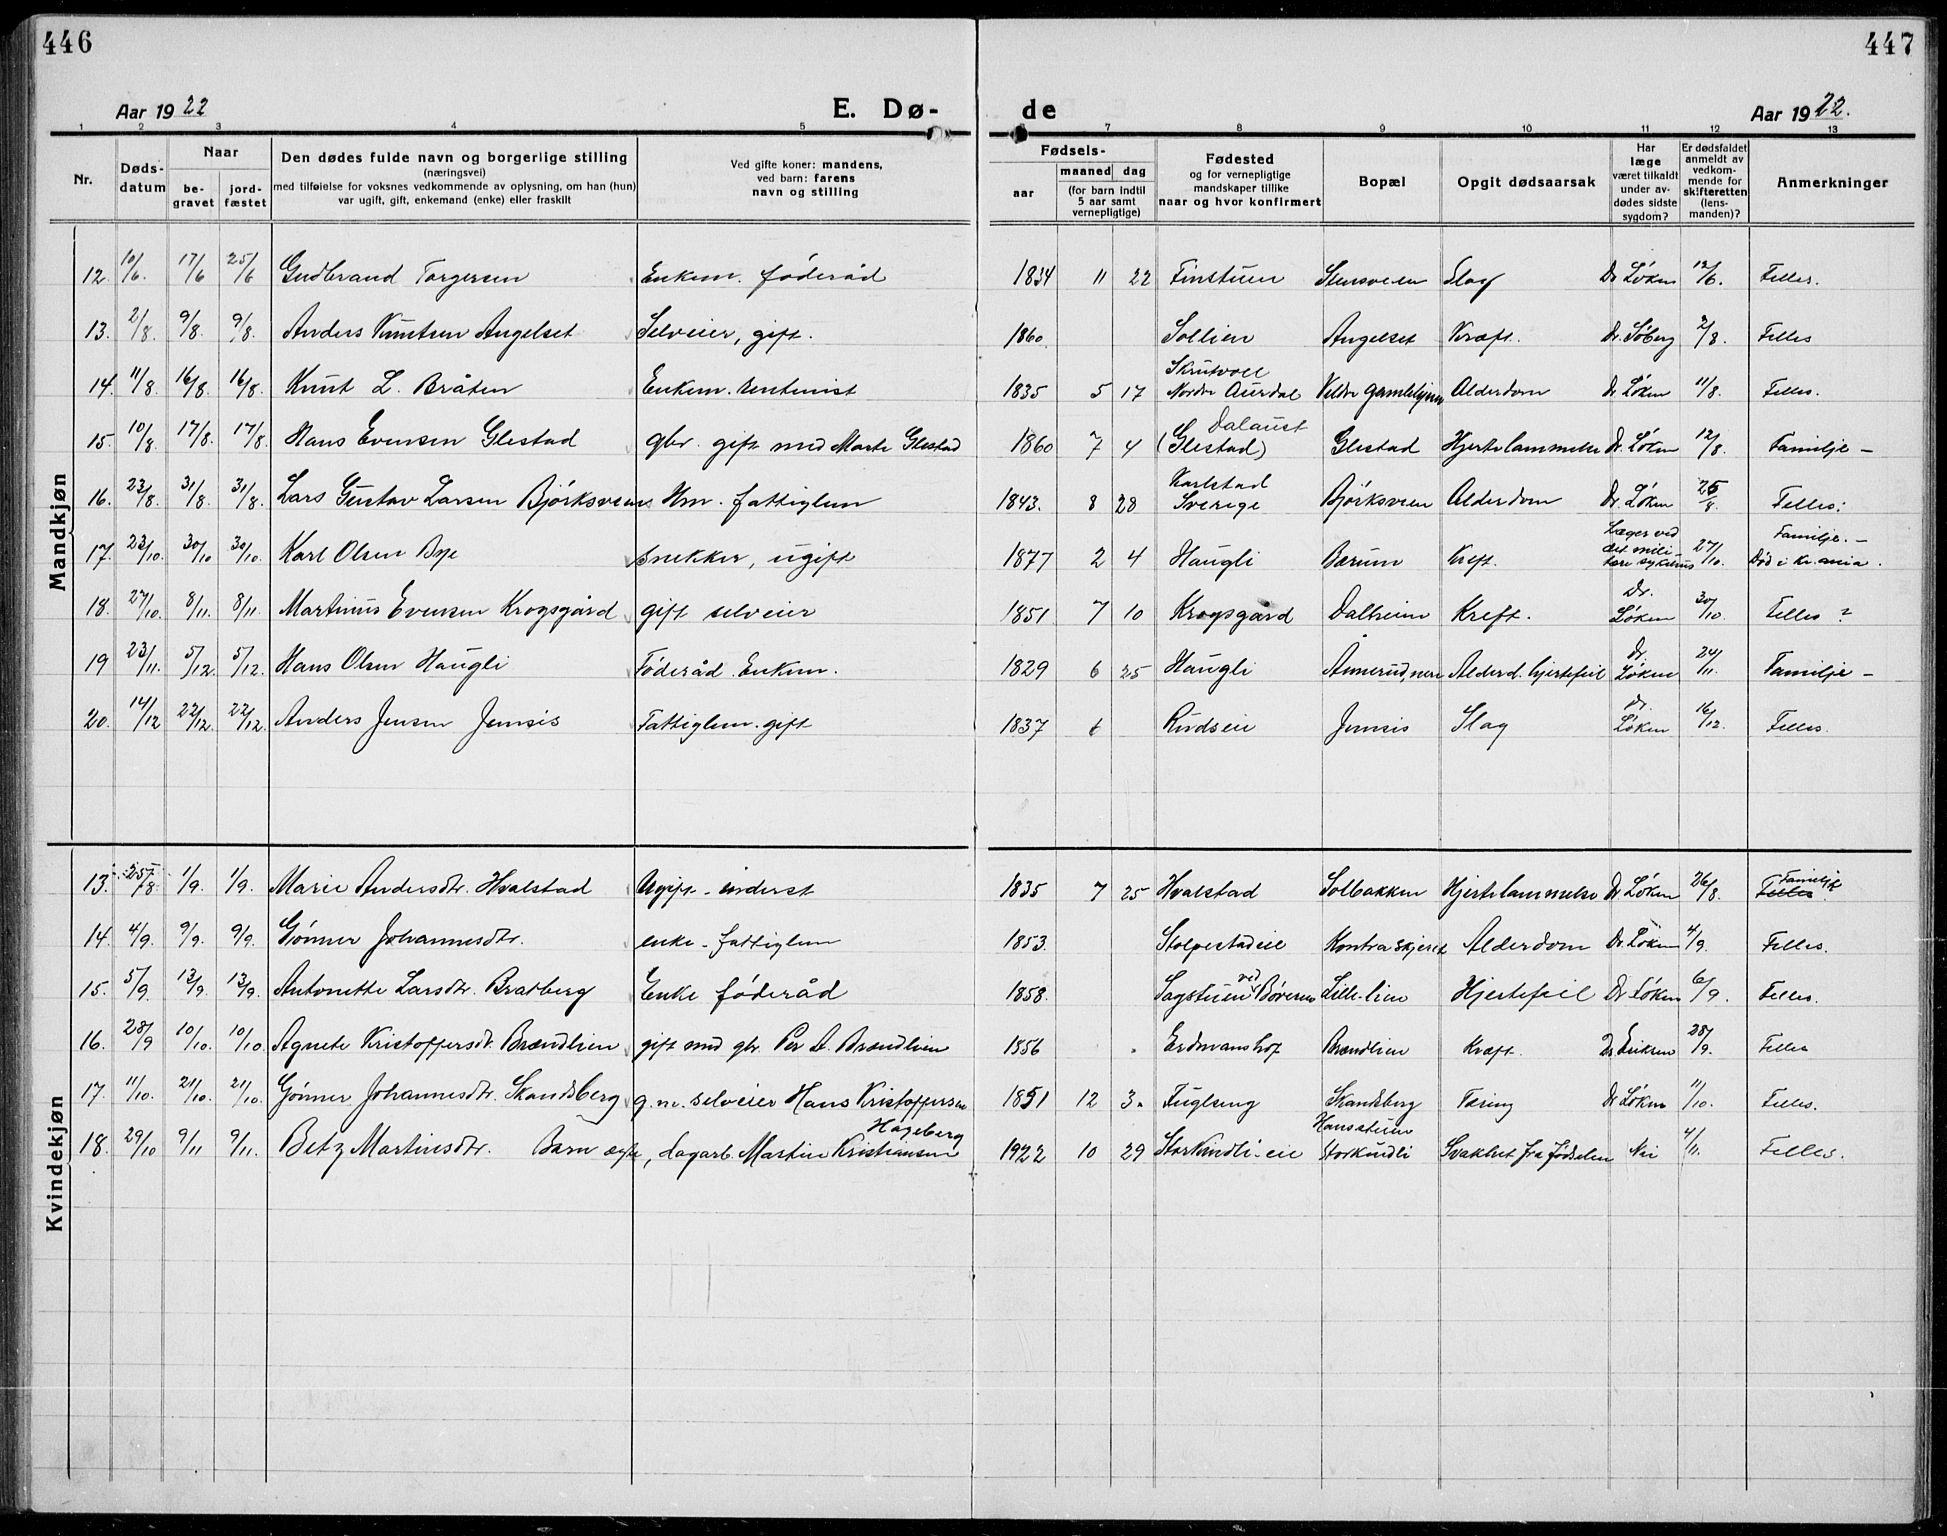 446
447
Aar 1922
E. Dø-
de
Aar 1922.
1 2 3 4 5 7 8 9 10 11 12 13
Nr.
Døds-
datum
Naar
be-
gravet
jord-
fæstet
Den dødes fulde navn og borgerlige stilling
(næringsvei)
med tilføielse for voksnes vedkommende av oplysning, om han (hun)
var ugift, gift, enkemand (enke) eller fraskilt
Ved gifte koner: mandens,
ved barn: farens
navn og stilling
Fødsels-
aar
maaned dag
(for barn indtil
5 aar samt
vernepligtige)
Fødested
og for vernepligtige
mandskaper tillike
naar og hvor konfirmert
Bopæl
Opgit dødsaarsak
Har
læge
været tilkaldt
under av-
dødes sidste
sygdom?
Er dødsfaldet
anmeldt av
vedkom-
mende for
skifteretten
(lens-
manden)?
Anmerkninger
Mandkjøn
12. 10/6. 17/6 25/6 Gudbrand Torgersen Enkem. føderåd 1834 11 22 Finstuen Stensveen Slag Dr Løken 12/6. Felles.
13. 2/8. 9/8. 9/8. Anders Knutsen Angelset Selveier, gift. 1860. Sollien Angelset Kræft. Dr. Søberg 2/8. Felles
Skrutvoll
14. 11/8. 16/8. 16/8. Knut L. Bråten Enkem. rentenist 1835 5 17 Nordre Aurdal Veldre gamlehjem Alderdom Dr Løken 11/8. Felles.
Dalaust
15. 10/8. 17/8. 17/8. Hans Evensen Glestad gbr. gift med Marte Glestad 1860 7 4 (Glestad) Glestad Hjertelammelse Dr. Løken 12/8. Familje –
Karlstad
16. 23/8. 31/8. 31/8. Lars Gustav Larsen Bjørksveen Hm. fattiglem 1843. 8 28 Sverige Bjørksveen Alderdom Dr. Løken 25/8. Felles.
Læger ved Familje. –
17. 23/10. 30/10 30/10. Karl Olsen Bye snekker, ugift 1877 2 4 Haugli Bærum Kreft. det mili-
tære sykehus 27/10. Død i Kr.ania.
Dr.
18. 27/10. 8/11. 8/11. Martinus Evensen Krogsgård gift selveier 1851 7 10 Krogsgård Dalheim Kreft. Løken 30/10. Felles ?
Dr.
19 23/11. 5/12. 5/12. Hans Olsen Haugli Føderåd. Enkem. 1829 6 25 Haugli Ånnerud, nere Alderd. hjertefeil Løken 24/11. Familje –
Dr.
20. 14/12 22/12. 22/12. Anders Jensen Jemsis Fattiglem. gift 1837 6 Rudseie Jemsis Slag Løken 16/12. Felles.
Kvindekjøn
Familje
13. 25/8. 1/9. 1/9. Marie Andersdtr. Hvalstad Ugift – inderst 1835 7 25 Hvalstad Solbakken Hjertelammelse Dr Løken 26/8. Felles.
14. 4/9. 9/9. 9/9. Gønner Johannesdtr. enke – fattiglem 1853. Stolpestadeie Kontraskjeret Alderdom Dr. Løken 4/9. Felles.
15. 5/9. 13/9. 13/9. Antonette Larsdtr. Bratberg Enke føderåd 1858. Sagstuen ved Børesen Lille-lien Hjertefeil Dr Løken 6/9. Felles.
16. 28/9 10/10. 10/10. Agnete Kristoffersdt. Brændlien gift med gbr. Per A. Brændlien 1856 Erdmanshof Brændlien Kræft. Dr Eriksen 28/9. Felles
17. 11/10. 21/10. 21/10. Gønner Johannesdtr. Skandsberg g.m. selveier Hans Kristoffersen 1851 12 3. Fugleng Skandsberg Tæring Dr Løken 11/10. Felles.
Hageberg Hansstuen
18. 29/10 9/11 9/11. Betzy Martinsdtr. Barn ægte, dagarb. Martin Kristiansen 1922 10 29 Storkindli-eie Storkindli Svakhet fra fødselen Nei 4/11. Felles.